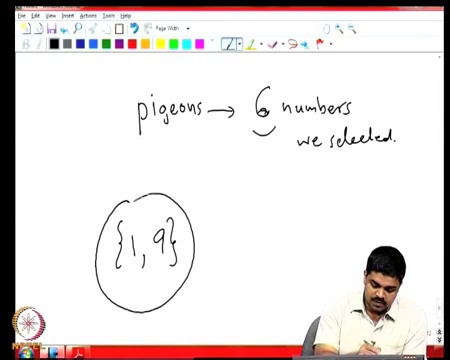 File Edit View Insert Actions Tools Help
Page Width
B I
pigeons → 6 numbers
we selected.
{1, 9}